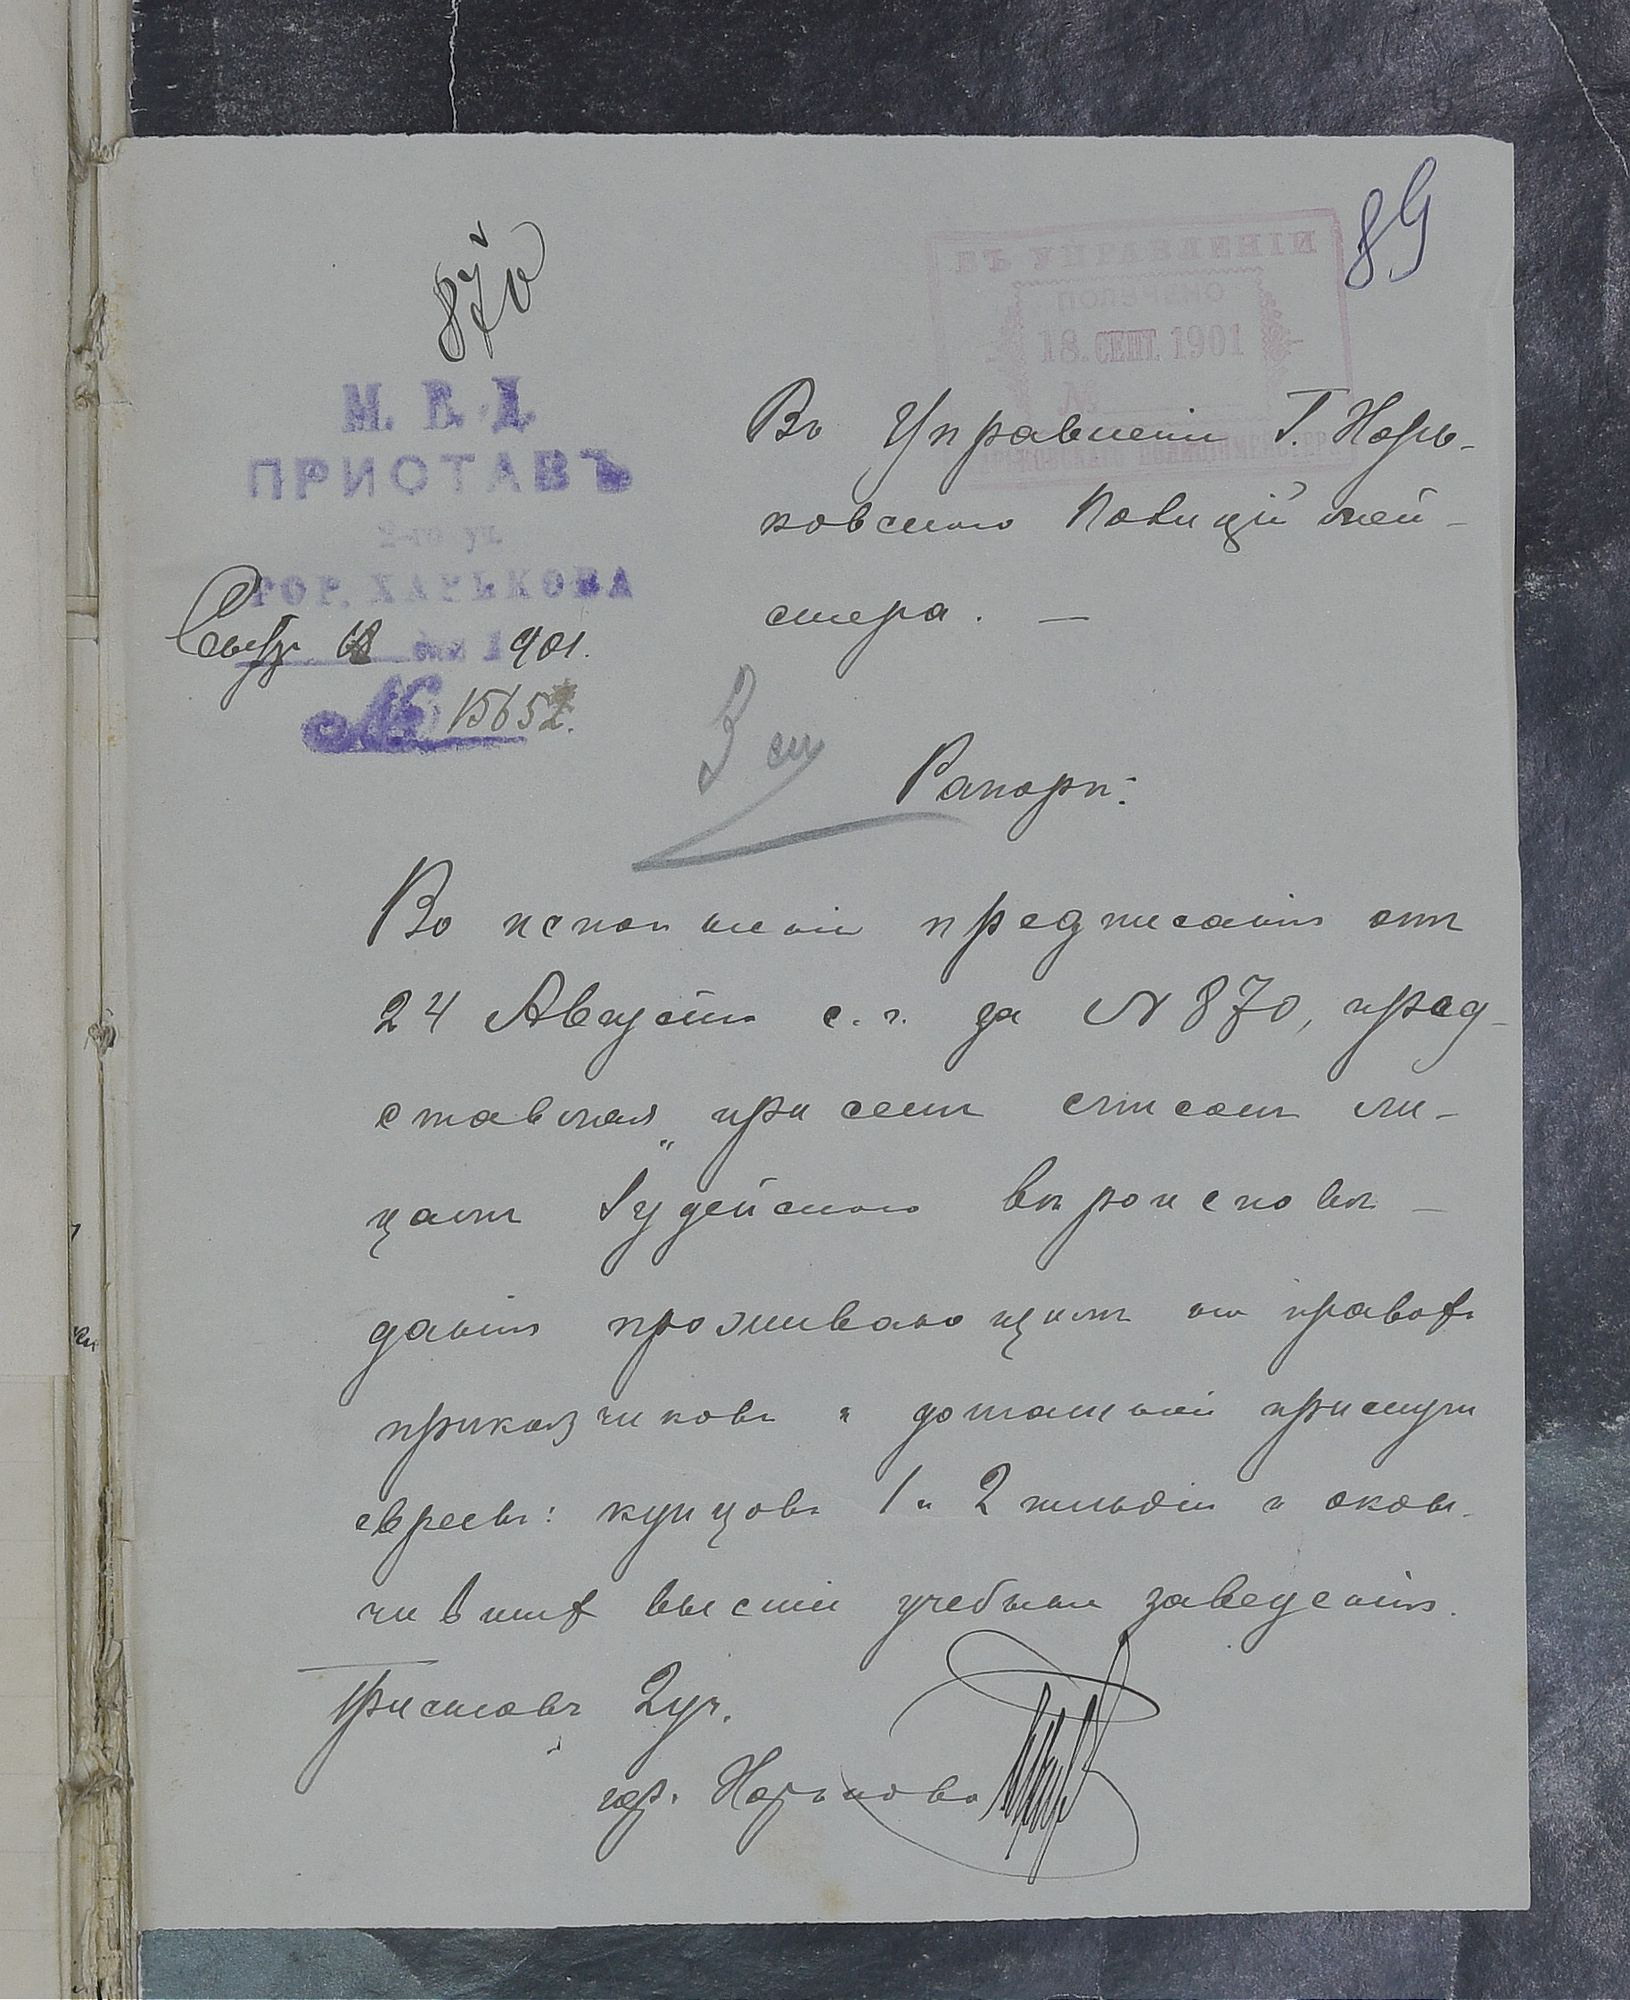 89
870
ВЪ УПРАВЛЕНІИ
ПОЛУЧЕНО
18. СЕНТ. 1901
№
ХАРЬКОВСКАГО ПОЛИЦІЙМЕЙСТЕРА
М. В. Д.
ПРИСТАВЪ
2-го уч.
ГОР. ХАРЬКОВА
Сентбр. 18 дня 1901.
№ 15652.
Въ Управленіи Г. Харь-
ковскаго Полиціймей-
стера. —
3 ст
Рапортъ:
Во исполненіи предписанія отъ
24 Августа с. г. за № 870, пред-
ставляя при семъ списокъ ли-
цамъ Іудейскаго вѣроисповѣ-
данія проживающимъ на правахъ
приказчиковъ и домашней прислуги
евреевъ: купцовъ 1 и 2 гильдіи и окон-
чившихъ высшіи учебныя заведенія.
Приставъ 2 уч.
гор. Харькова